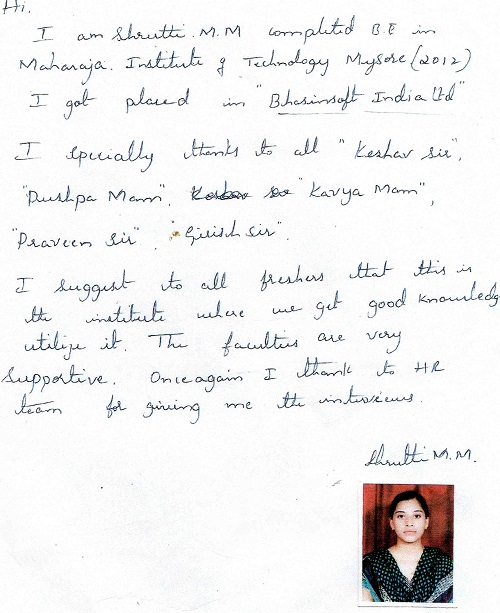 Hi.
I am Shrutti. M.M completed B.E in
Maharaja. Institute of Technology Mysore (2012)
I got placed in "Bhasinsoft India Ltd"
I specially thanks to all "Keshav sir",
"Pushpa Mam", Keshav sir "Kavya Mam",
"Praveen Sir", "Girish Sir".
I suggest to all freshers that this is
the institute where we get good knowledge
utilize it. The faculties are very
Supportive. Once again I thank to HR
team for giving me the interviews.
Shrutti M.M.